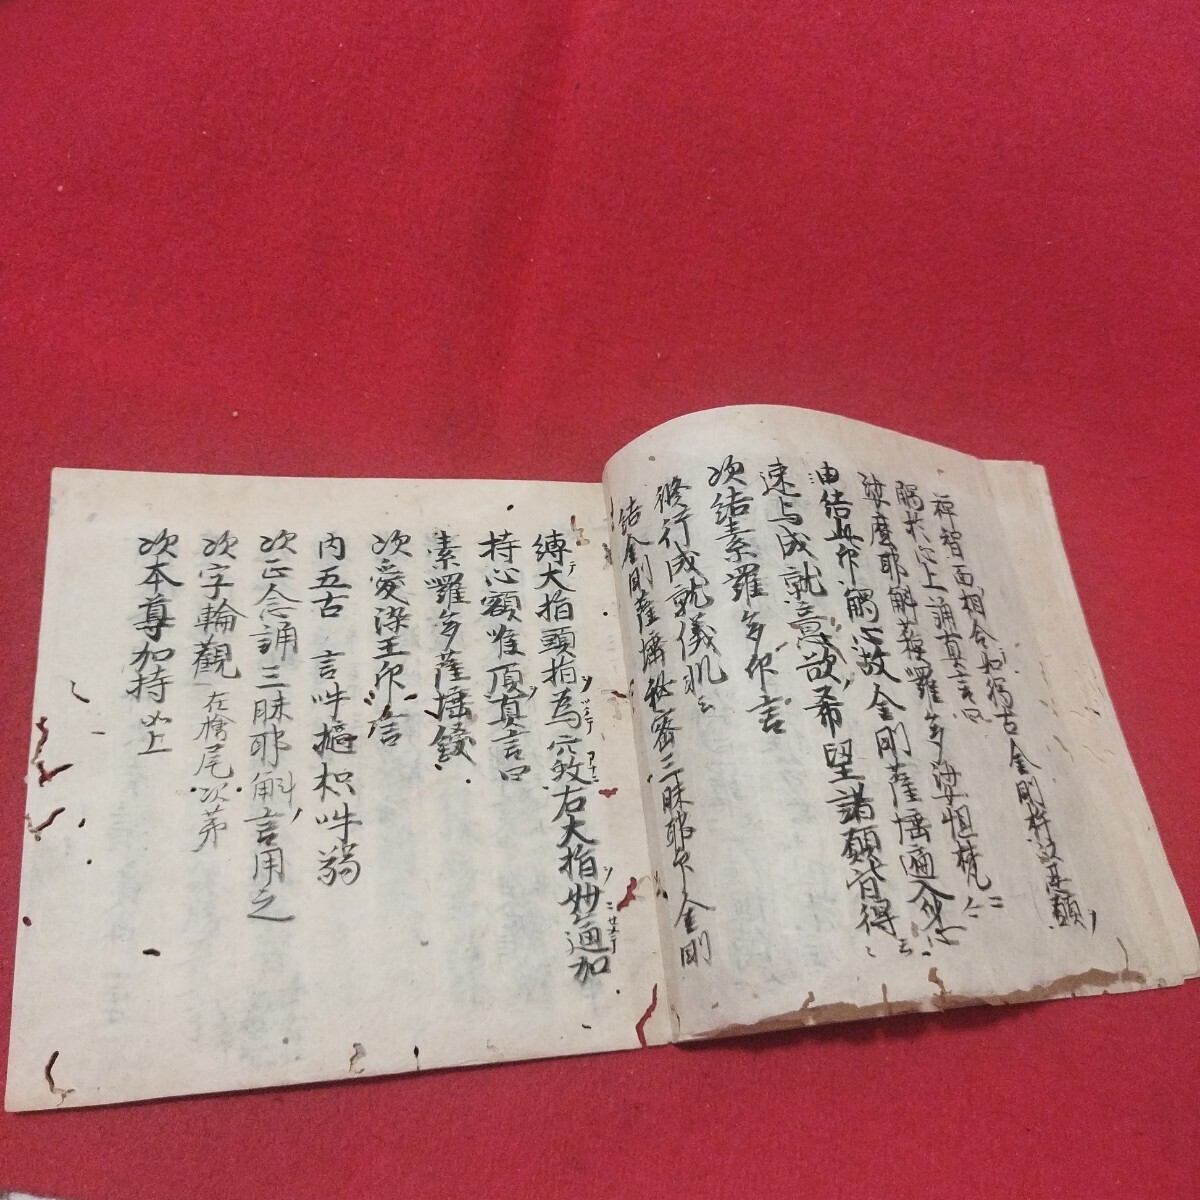 禅智面相合如獨古金剛杵安置額
觸於心上誦真言曰
娑麼耶斛蘓羅多娑怛梵
由結此印觸心故金剛薩埵遍入身心
速与成就意欲希望諸願皆得
次結素羅多印言
修行成就儀軌云
結金剛薩埵秘密三昧耶印金剛
縛大指頭拍為穴敎右大指
通加
持心額喉頂真言曰
素羅多薩埵鑁
次愛染王印言
内五古 言吽
枳吽
次正念誦三昧耶斛言用之
次字輪觀 在檜尾次第
次本尊加持 如上